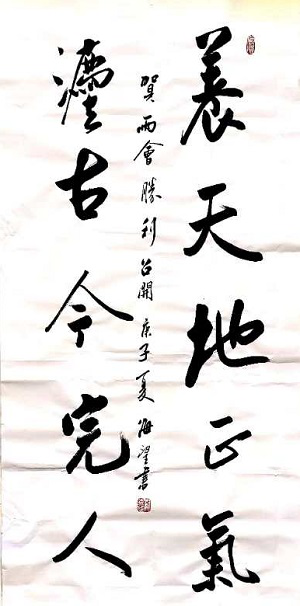 養天地正氣
灋古今完人
賀兩會勝利召開庚子夏海望書